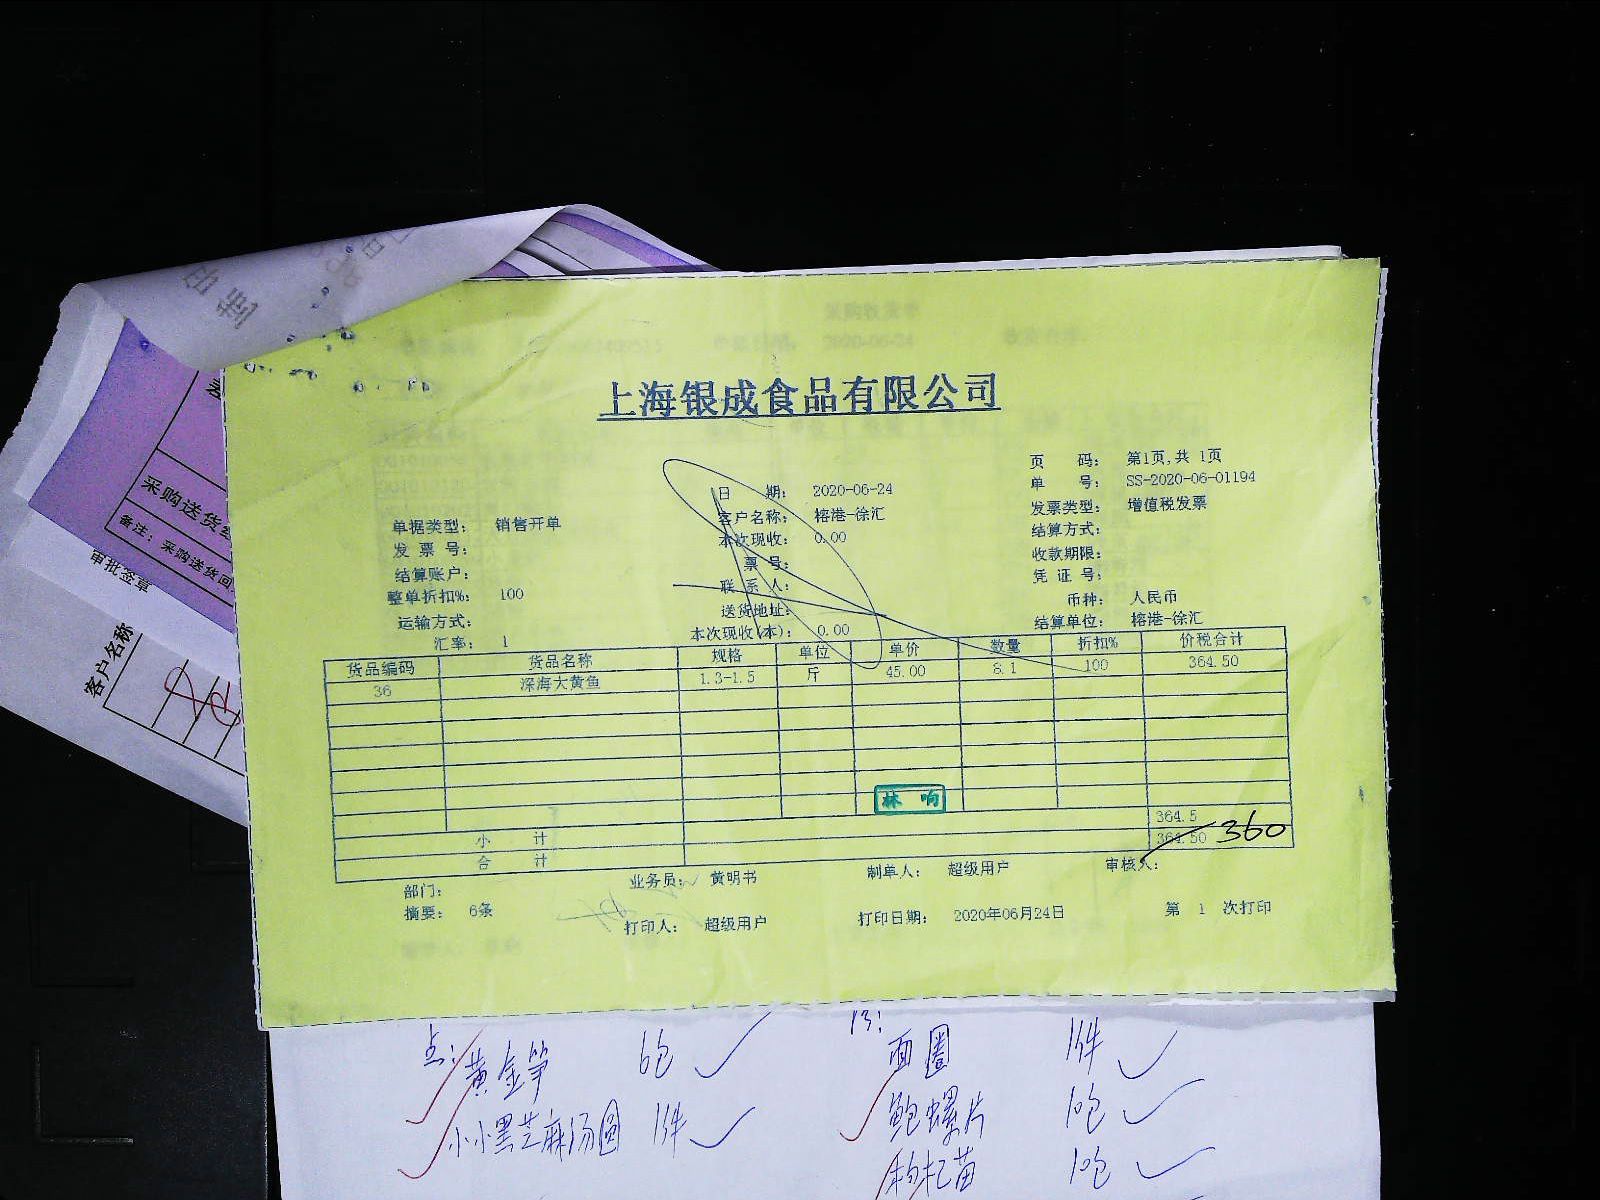 上海银成食品有限公司
页 码: 第1页,共 1页
日 期: 2020-06-24 单 号: SS-2020-06-01194
单据类型: 销售开单 客户名称: 榕港-徐汇 发票类型: 增值税发票
发 票 号: 本次现收: 0.00 结算方式:
结算账户: 票 号: 收款期限:
整单折扣%: 100 联 系 人: 凭 证 号:
运输方式: 送货地址: 币种: 人民币
汇率: 1 本次现收(本): 0.00 结算单位: 榕港-徐汇
货品编码 货品名称 规格 单位 单价 数量 折扣% 价税合计
36 深海大黄鱼 1.3-1.5 斤 45.00 8.1 100 364.50
林 响
小 计 364.5
合 计 364.50 360
部门: 业务员: 黄明书 制单人: 超级用户 审核人:
摘要: 6条 打印人: 超级用户 打印日期: 2020年06月24日 第 1 次打印
采购送货
备注: 采购送货回
审批签章
客户名称
点: 黄金笋 6包
小小黑芝麻汤圆 1件
面圈 1件
鲍螺片 10包
枸杞苗 10包